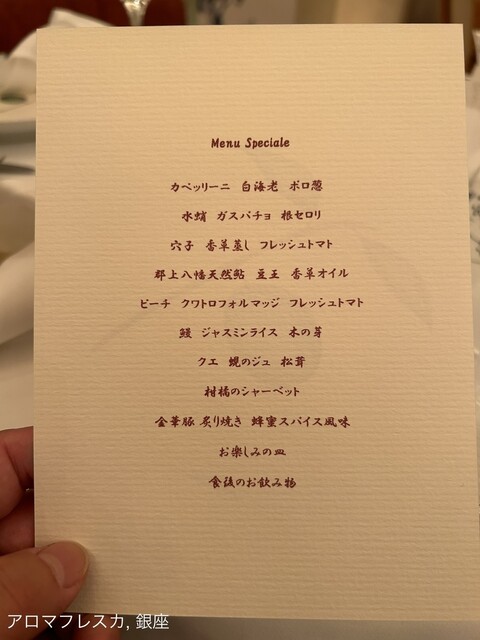 Menu Speciale
カペッリーニ 白海老 ポロ葱
水蛸 ガスパチョ 根セロリ
穴子 香草蒸し フレッシュトマト
郡上八幡天然鮎 豆王 香草オイル
ピーチ クワトロフォルマッジ フレッシュトマト
鰻 ジャスミンライス 木の芽
クエ 蜆のジュ 松茸
柑橘のシャーベット
金華豚 炙り焼き 蜂蜜スパイス風味
お楽しみの皿
食後のお飲み物
アロマフレスカ, 銀座